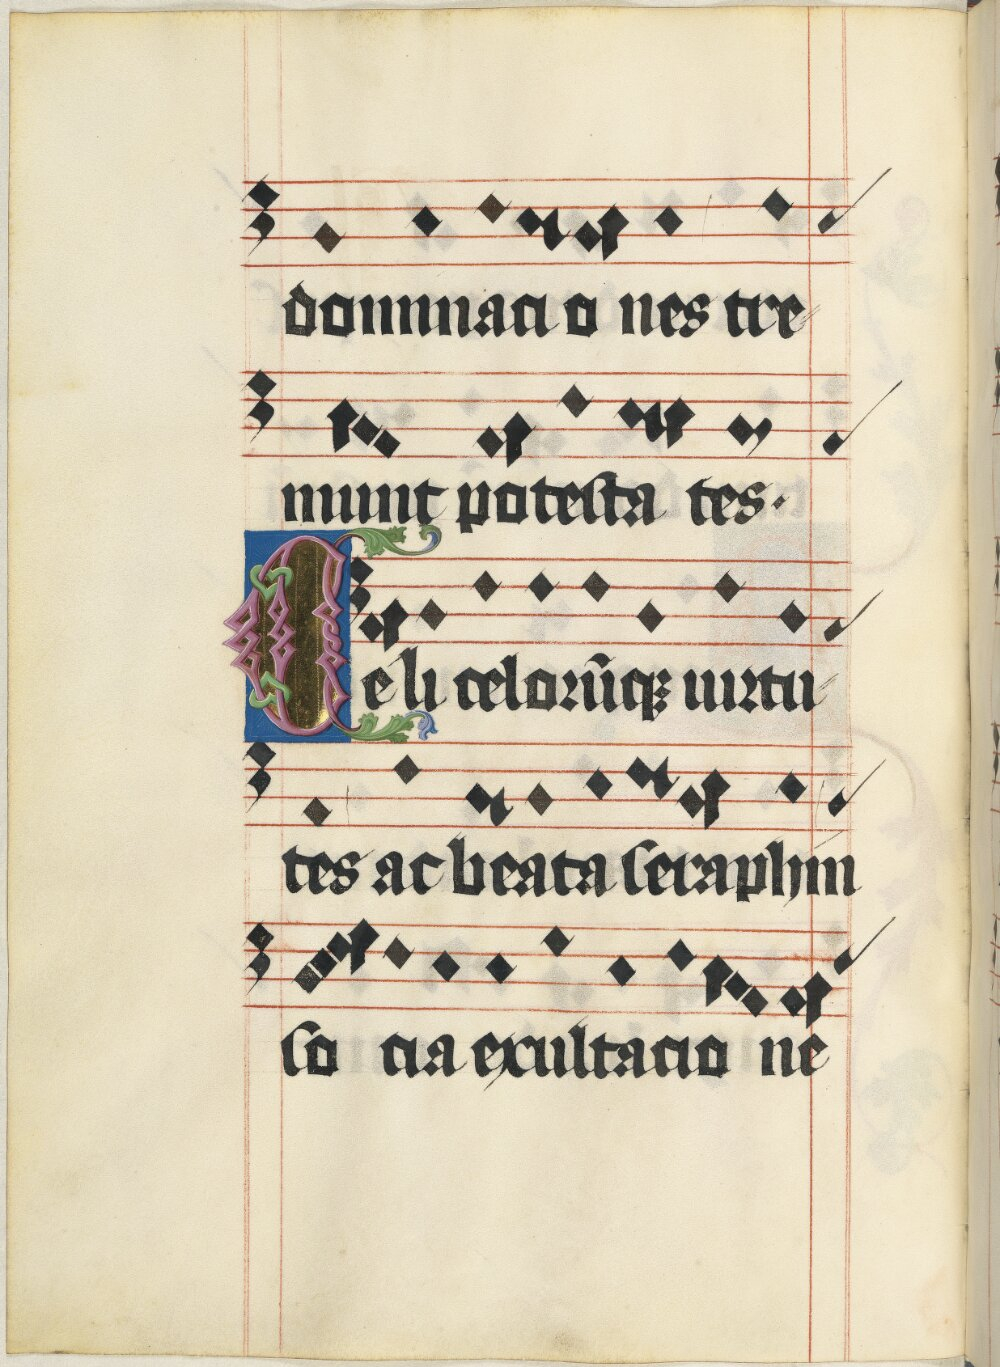 dominacio nes tre
munt potesta tes·
Celi celorūqꝫ uirtu
tes ac beata seraphin
so cia exultacio nē